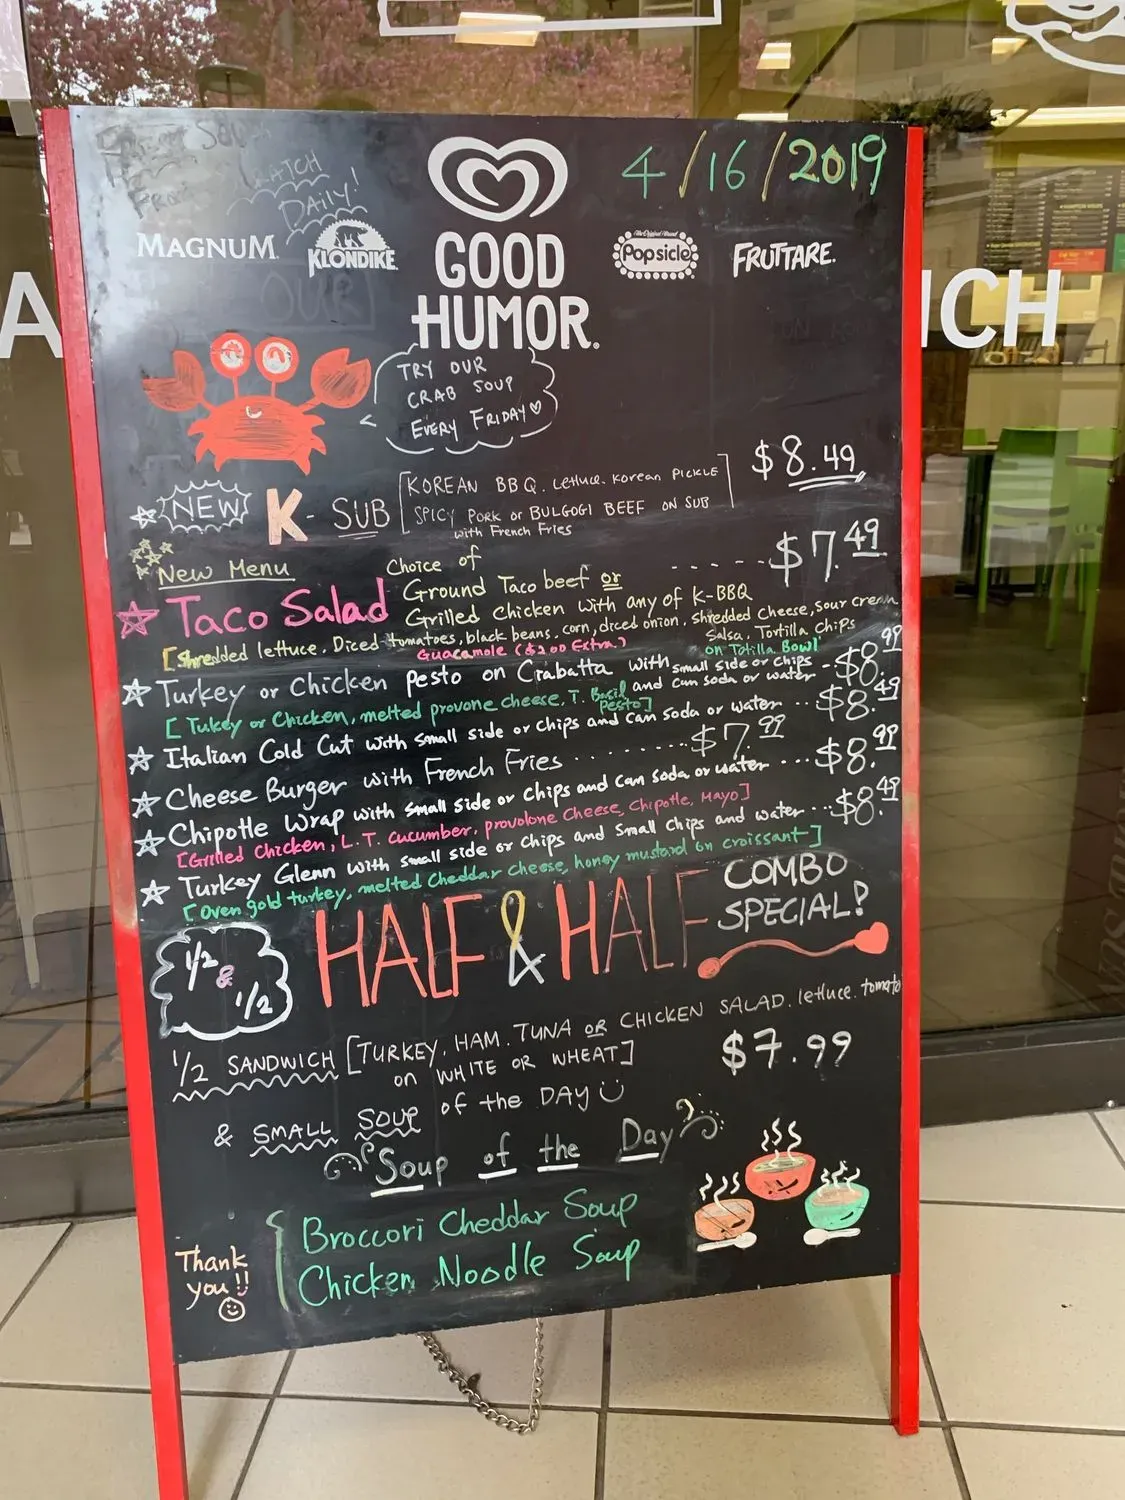 4/16/2019
FROM SCRATCH
DAILY!
MAGNUM
KLONDIKE.
GOOD
HUMOR.
The Original Brand
Popsicle
FRUTTARE.
A
NCH
OUR
TRY OUR
CRAB SOUP
EVERY FRIDAY♡
☆ NEW K- SUB [KOREAN BBQ. Lettuce. Korean PICKLE] $8.49
SPICY PORK or BULGOGI BEEF ON SUB
with French Fries
New Menu
Choice of
☆ Taco Salad Ground Taco beef or ----- $7.49
Grilled Chicken with any of K-BBQ
[Shredded lettuce, Diced tomatoes, black beans, corn, diced onion, shredded cheese, sour cream
Salsa, Tortilla chips
Guacamole ($2.00 Extra) on Totilla Bowl
☆ Turkey or Chicken pesto on Crabatta with small side or chips - $8.99
and can soda or water
[Tukey or Chicken, melted provone cheese, T. Basil Pesto]
☆ Italian Cold Cut with small side or chips and can soda or water .. $8.49
☆ Cheese Burger with French Fries ....... $7.99
☆ Chipotle Wrap with small side or chips and can soda or water ... $8.99
[Grilled Chicken, L.T. Cucumber, provolone Cheese, Chipotle, Mayo]
☆ Turkey Glenn with small side or chips and small chips and water ... $8.49
[Oven gold turkey, melted Cheddar cheese, honey mustard on croissant]
1/2 & 1/2
HALF & HALF COMBO
SPECIAL!
1/2 SANDWICH [TURKEY. HAM. TUNA OR CHICKEN SALAD. lettuce. tomato
on WHITE OR WHEAT] $7.99
& SMALL SOUP of the DAY
Soup of the Day
Broccori Cheddar Soup
Chicken Noodle Soup
Thank
you!!